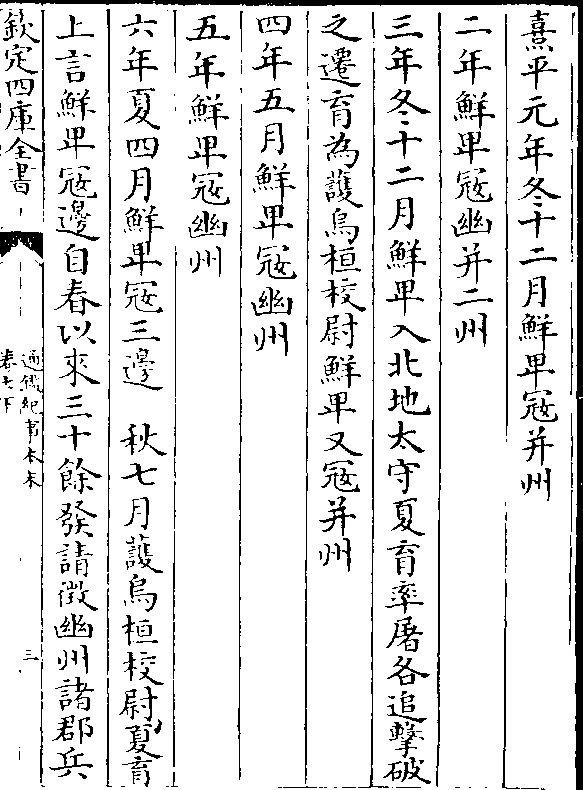 熹平元年冬十二月鮮卑寇并州
二年鮮卑寇幽并二州
三年冬十二月鮮卑入北地太守夏育率屠各追擊破
之遷育為護烏桓校尉鮮卑又寇并州
四年五月鮮卑寇幽州
五年鮮卑寇幽州
六年夏四月鮮卑寇三邊　秋七月護烏桓校尉夏育
上言鮮卑寇邊自春以來三十餘發請徴幽州諸郡兵
欽定四庫全書
通鑑紀事本末
三